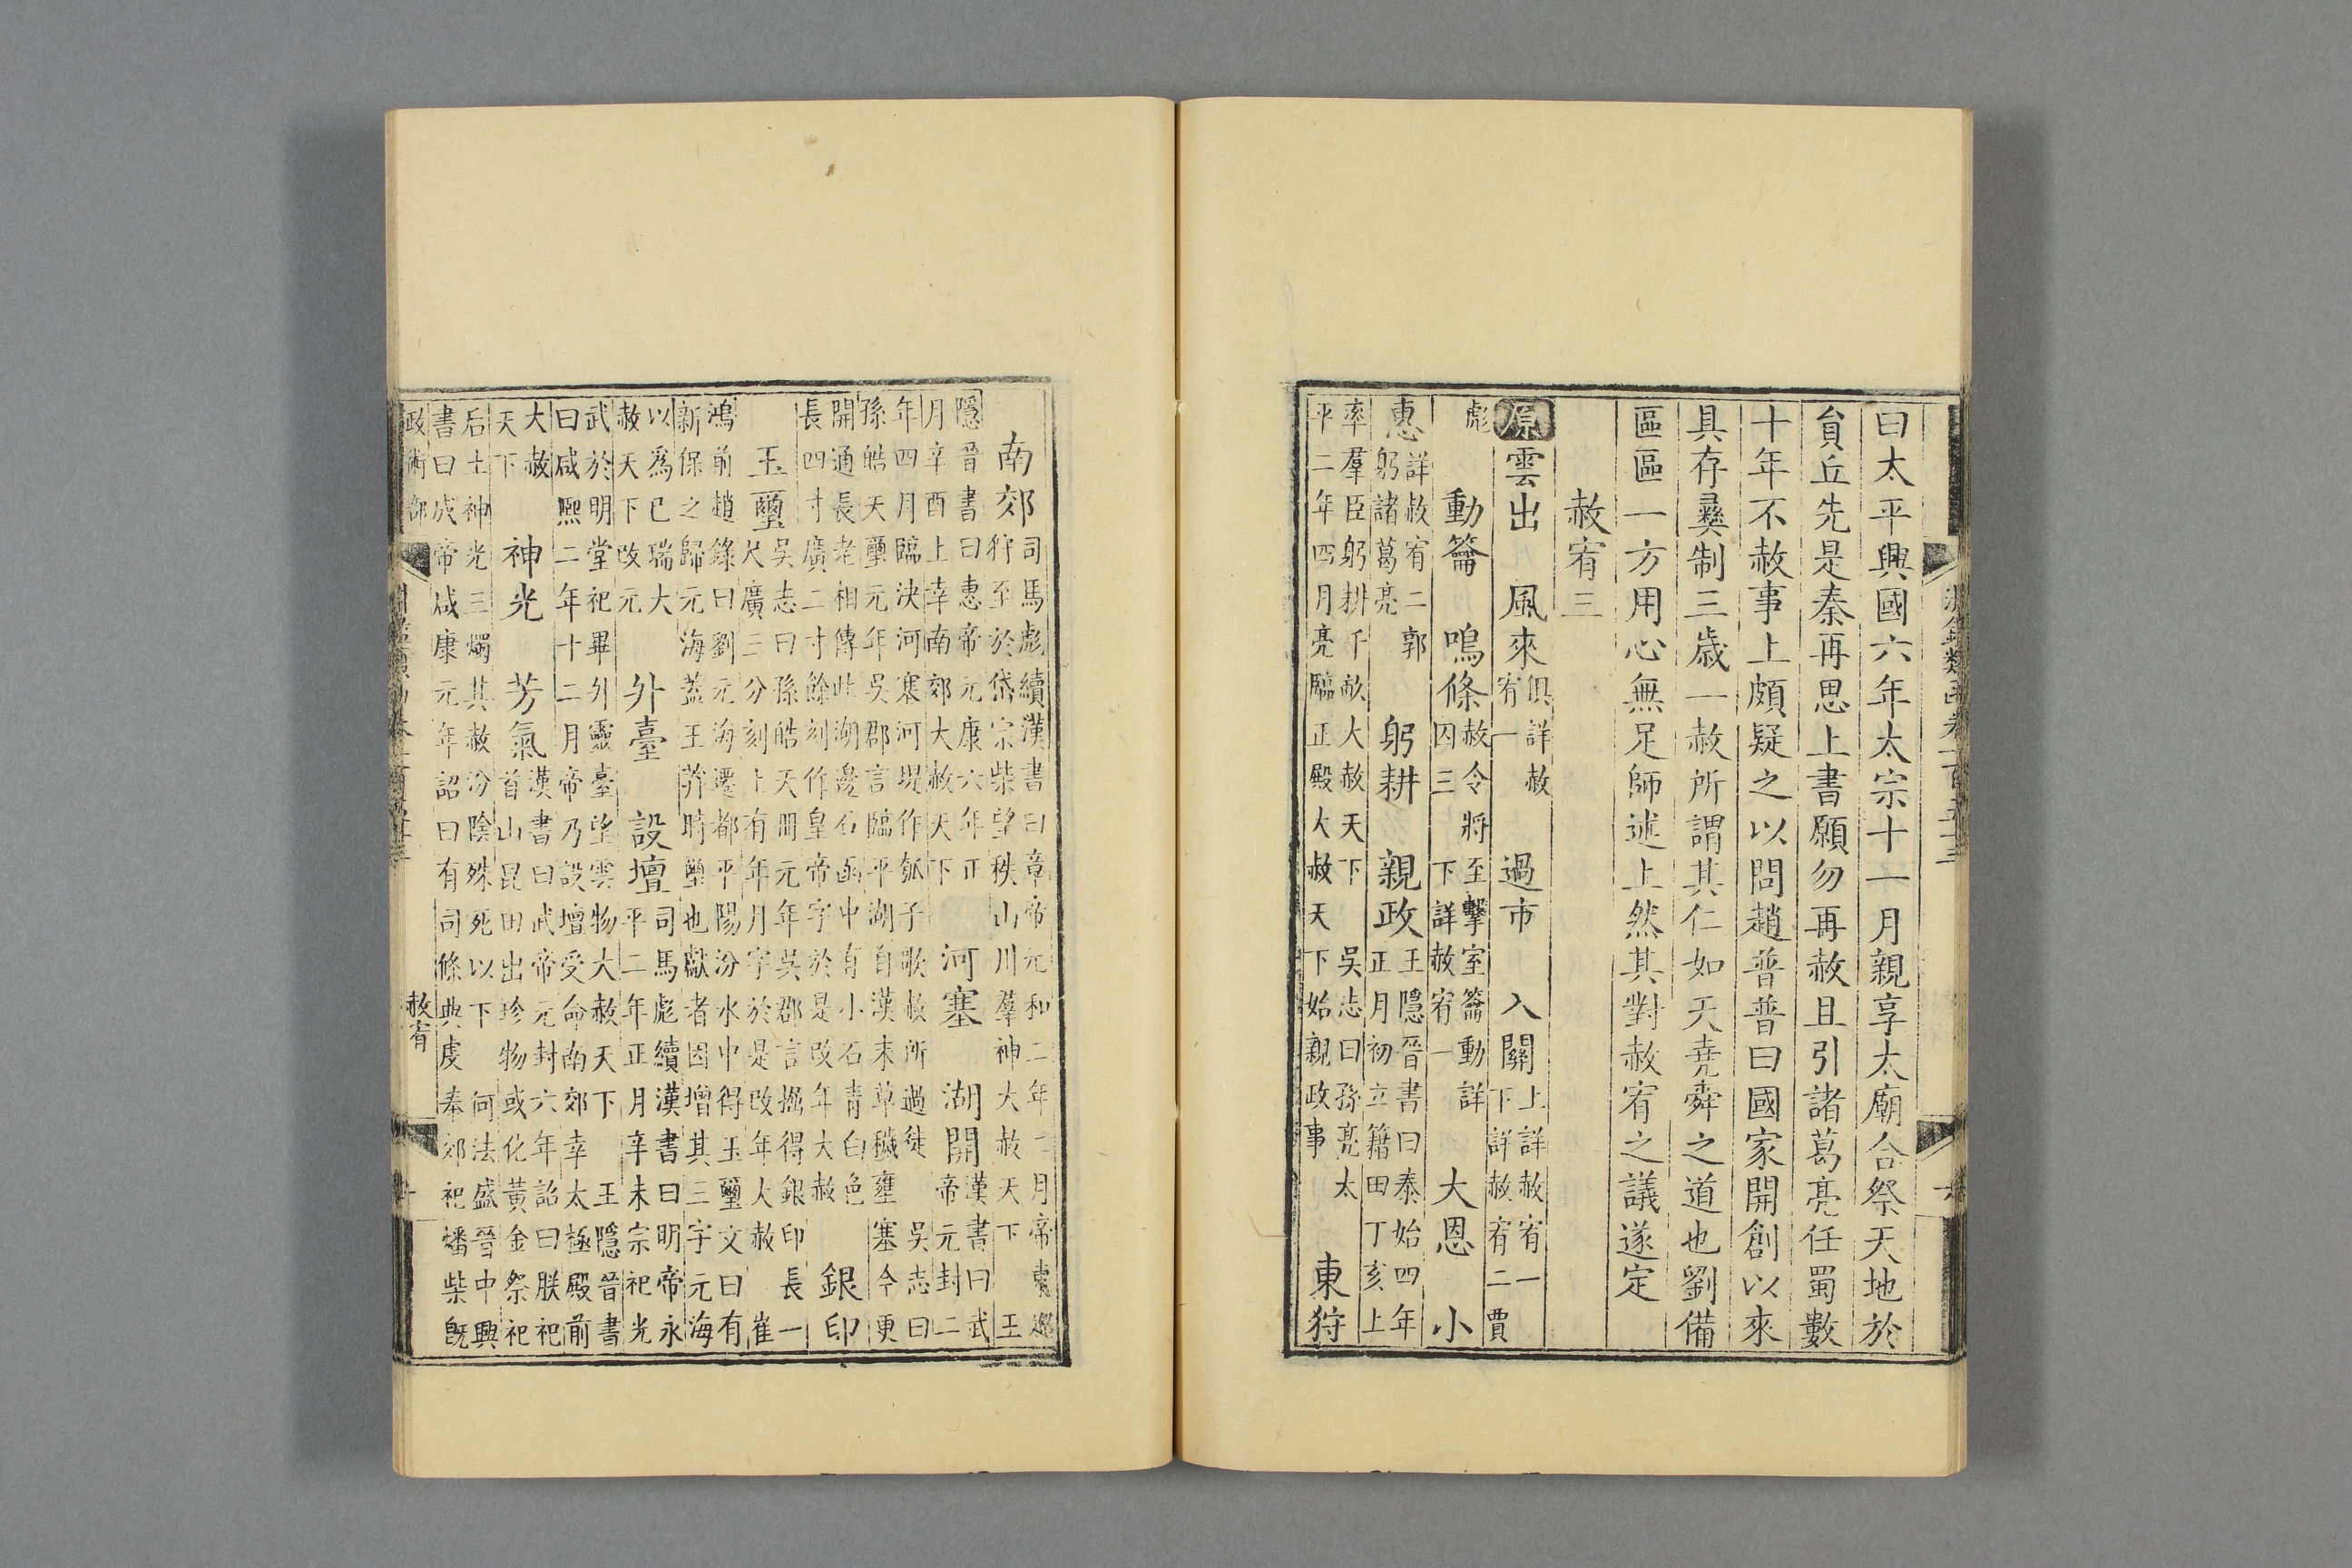 曰太平興國六年太宗十一月親享太廟合祭天地於
貟丘先是秦再思上書願勿再赦且引諸葛亮任蜀數
十年不赦事上頗疑之以問趙普普曰國家開創以來
具存彞制三歳一赦所謂其仁如天堯舜之道也劉備
區區一方用心無足師述上然其對赦宥之議遂定
赦宥三
原雲出 風來俱詳赦宥一 過市 入關上詳赦宥一下詳赦宥二賈
彪 動籥 鳴條赦令將至擊室籥動詳囚三下詳赦宥一 大恩 小
惠詳赦宥二郭躬諸葛亮 躬耕 親政王隱晉書曰泰始四年正月初立籍田丁亥上
率羣臣躬耕千畝大赦天下 吳志曰孫亮太平二年四月亮臨正殿大赦天下始親政事 東狩
南郊司馬彪續漢書曰章帝元和二年二月帝東巡狩至於岱宗柴望秩山川羣神大赦天下 王
隱晉書曰惠帝元康六年正月辛酉上幸南郊大赦天下 河塞 湖開漢書曰武帝元封二
年四月臨決河塞河堤作瓠子歌赦所過徒 吳志曰孫皓天璽元年吳郡言臨平湖自漢末草穢壅塞今更
開通長老相傳此湖邊石函中有小石青白色長四寸廣二寸餘刻作皇帝字於是改年大赦 銀印
玉璽吳志曰孫皓天冊元年吳郡言掘得銀印長一尺廣三分刻上有年月字於是改年大赦 崔
鴻前趙錄曰劉元海遷都平陽汾水中得玉璽文曰有新保之歸元海蓋王莽時璽也獻者因增其三字元海
以爲已瑞大赦天下改元 外臺 設壇司馬彪續漢書曰明帝永平二年正月辛未宗祀光
武於明堂祀畢外靈臺望雲物大赦天下 王隱晉書曰咸熙二年十二月帝乃設壇受命南郊幸太極殿前
大赦天下 神光 芳氣漢書曰武帝元封六年詔曰朕祀首山昆田出珍物或化黃金祭祀
后土神光三燭其赦汾陰殊死以下 何法盛晉中興書曰成帝咸康元年詔曰有司條典虔奉郊祀燔柴旣
政術部 赦宥